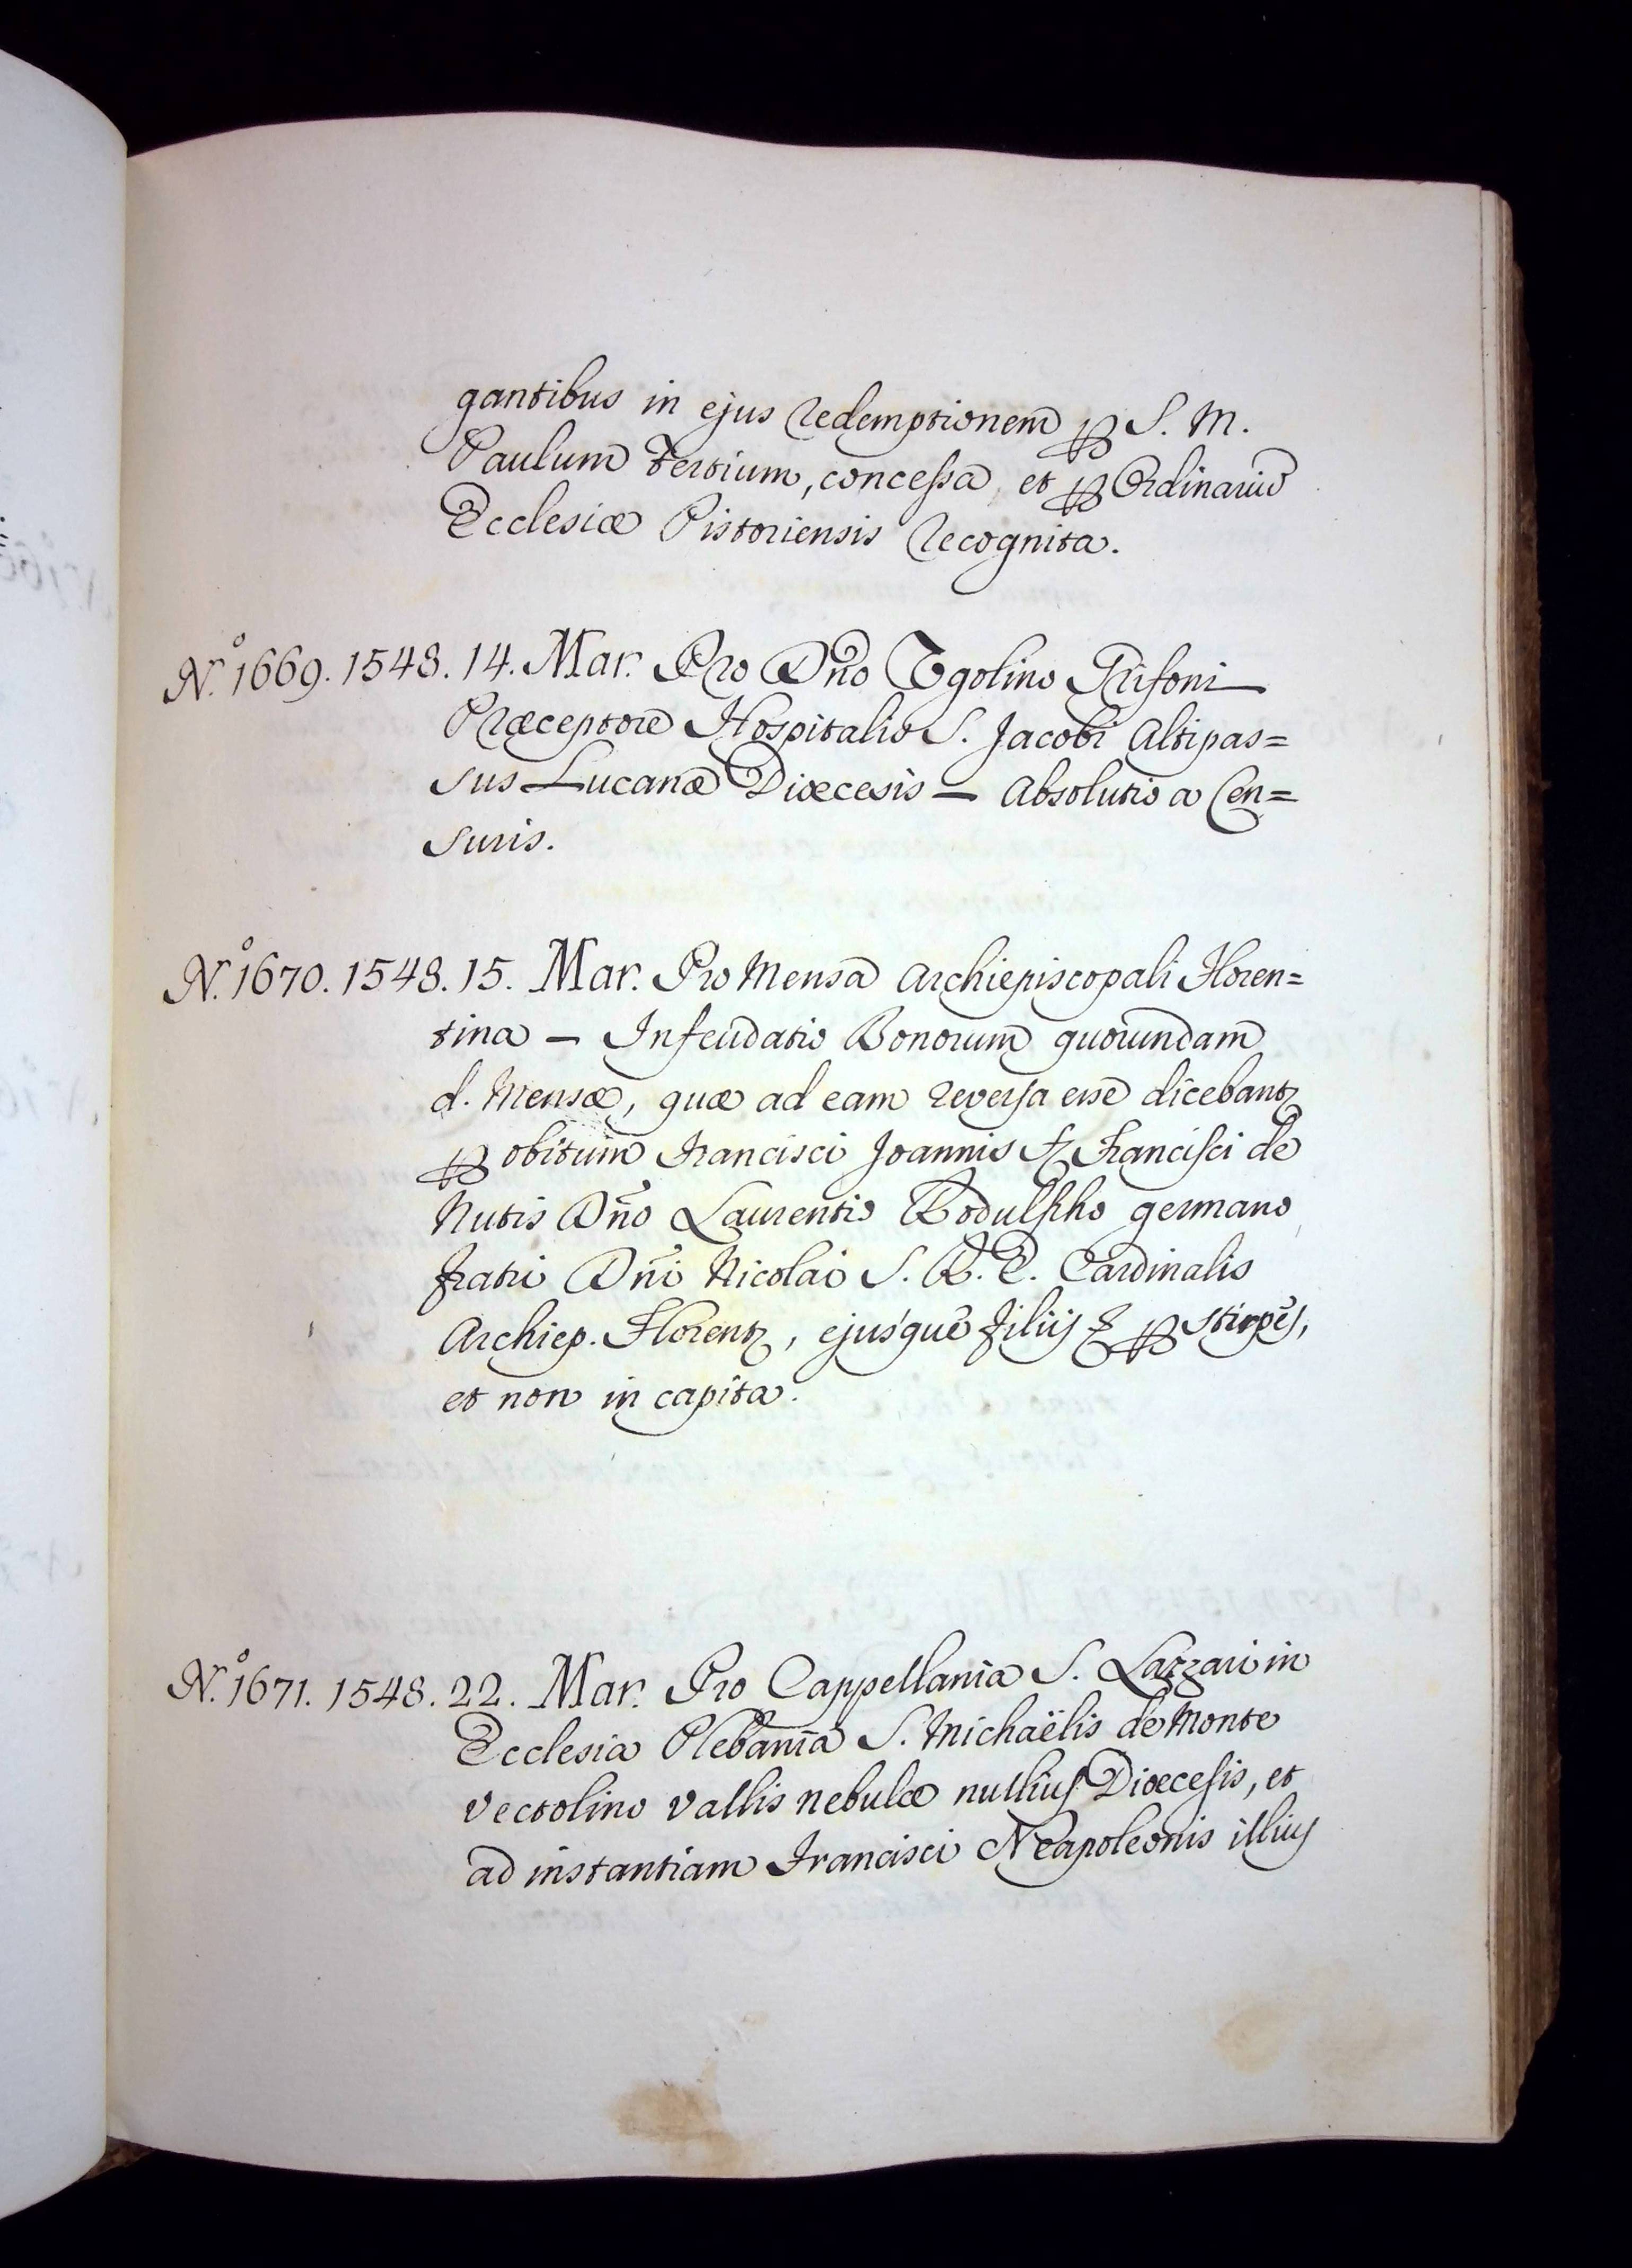 gantibus in ejus redemptionem ꝑ S. M.
Paulum Tertium, concessa, et ꝑ Ordinario
Ecclesiæ Pistoriensis recognita.
N.º 1669. 1548. 14. Mar. Pro Dño Ugolino Grifoni
Præceptore Hospitalis S. Jacobi Altipas=
sus Lucanæ Diœcesis — Absolutio a Cen=
suris.
N.º 1670. 1548. 15. Mar. Pro Mensa Archiepiscopali Floren=
tina — Infeudatio Bonorum quorundam
d. Mensæ, quæ ad eam reversa esse dicebant
ꝑ obitum Francisci Joannis Francisci de
Nutis Dño Laurentio Rodulpho germano
fratri Dñi Nicolai S. R. E. Cardinalis
Archiep. Florent, ejusque filiis ꝑ stirpes,
et non in capita.
N.º 1671. 1548. 22. Mar. Pro Cappellania S. Lazzari in
Ecclesia Plebania S. Michaëlis de Monte
Vectolino Vallis nebulæ nullius Diœcesis, et
ad instantiam Francisci Neapoleonis illius